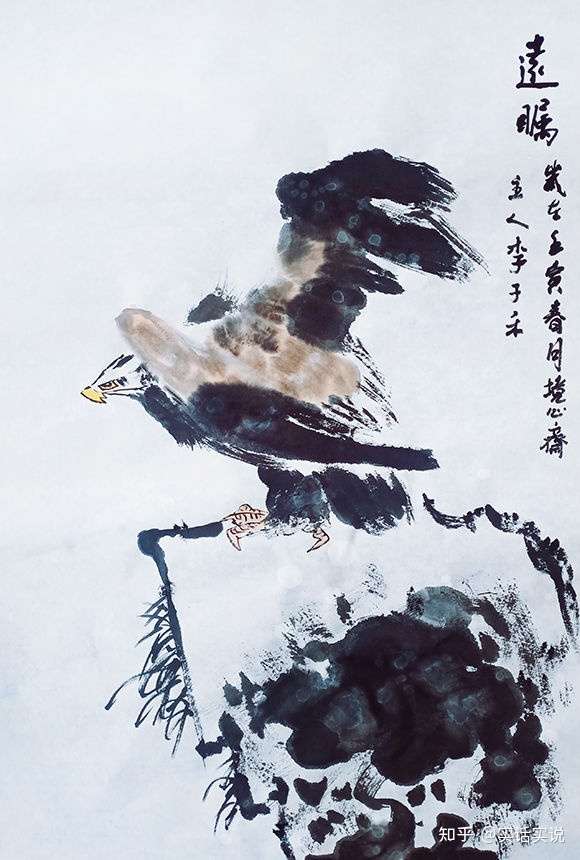 遠瞩
歲在壬寅春月境心齋
主人李子禾
知乎 @实话实说